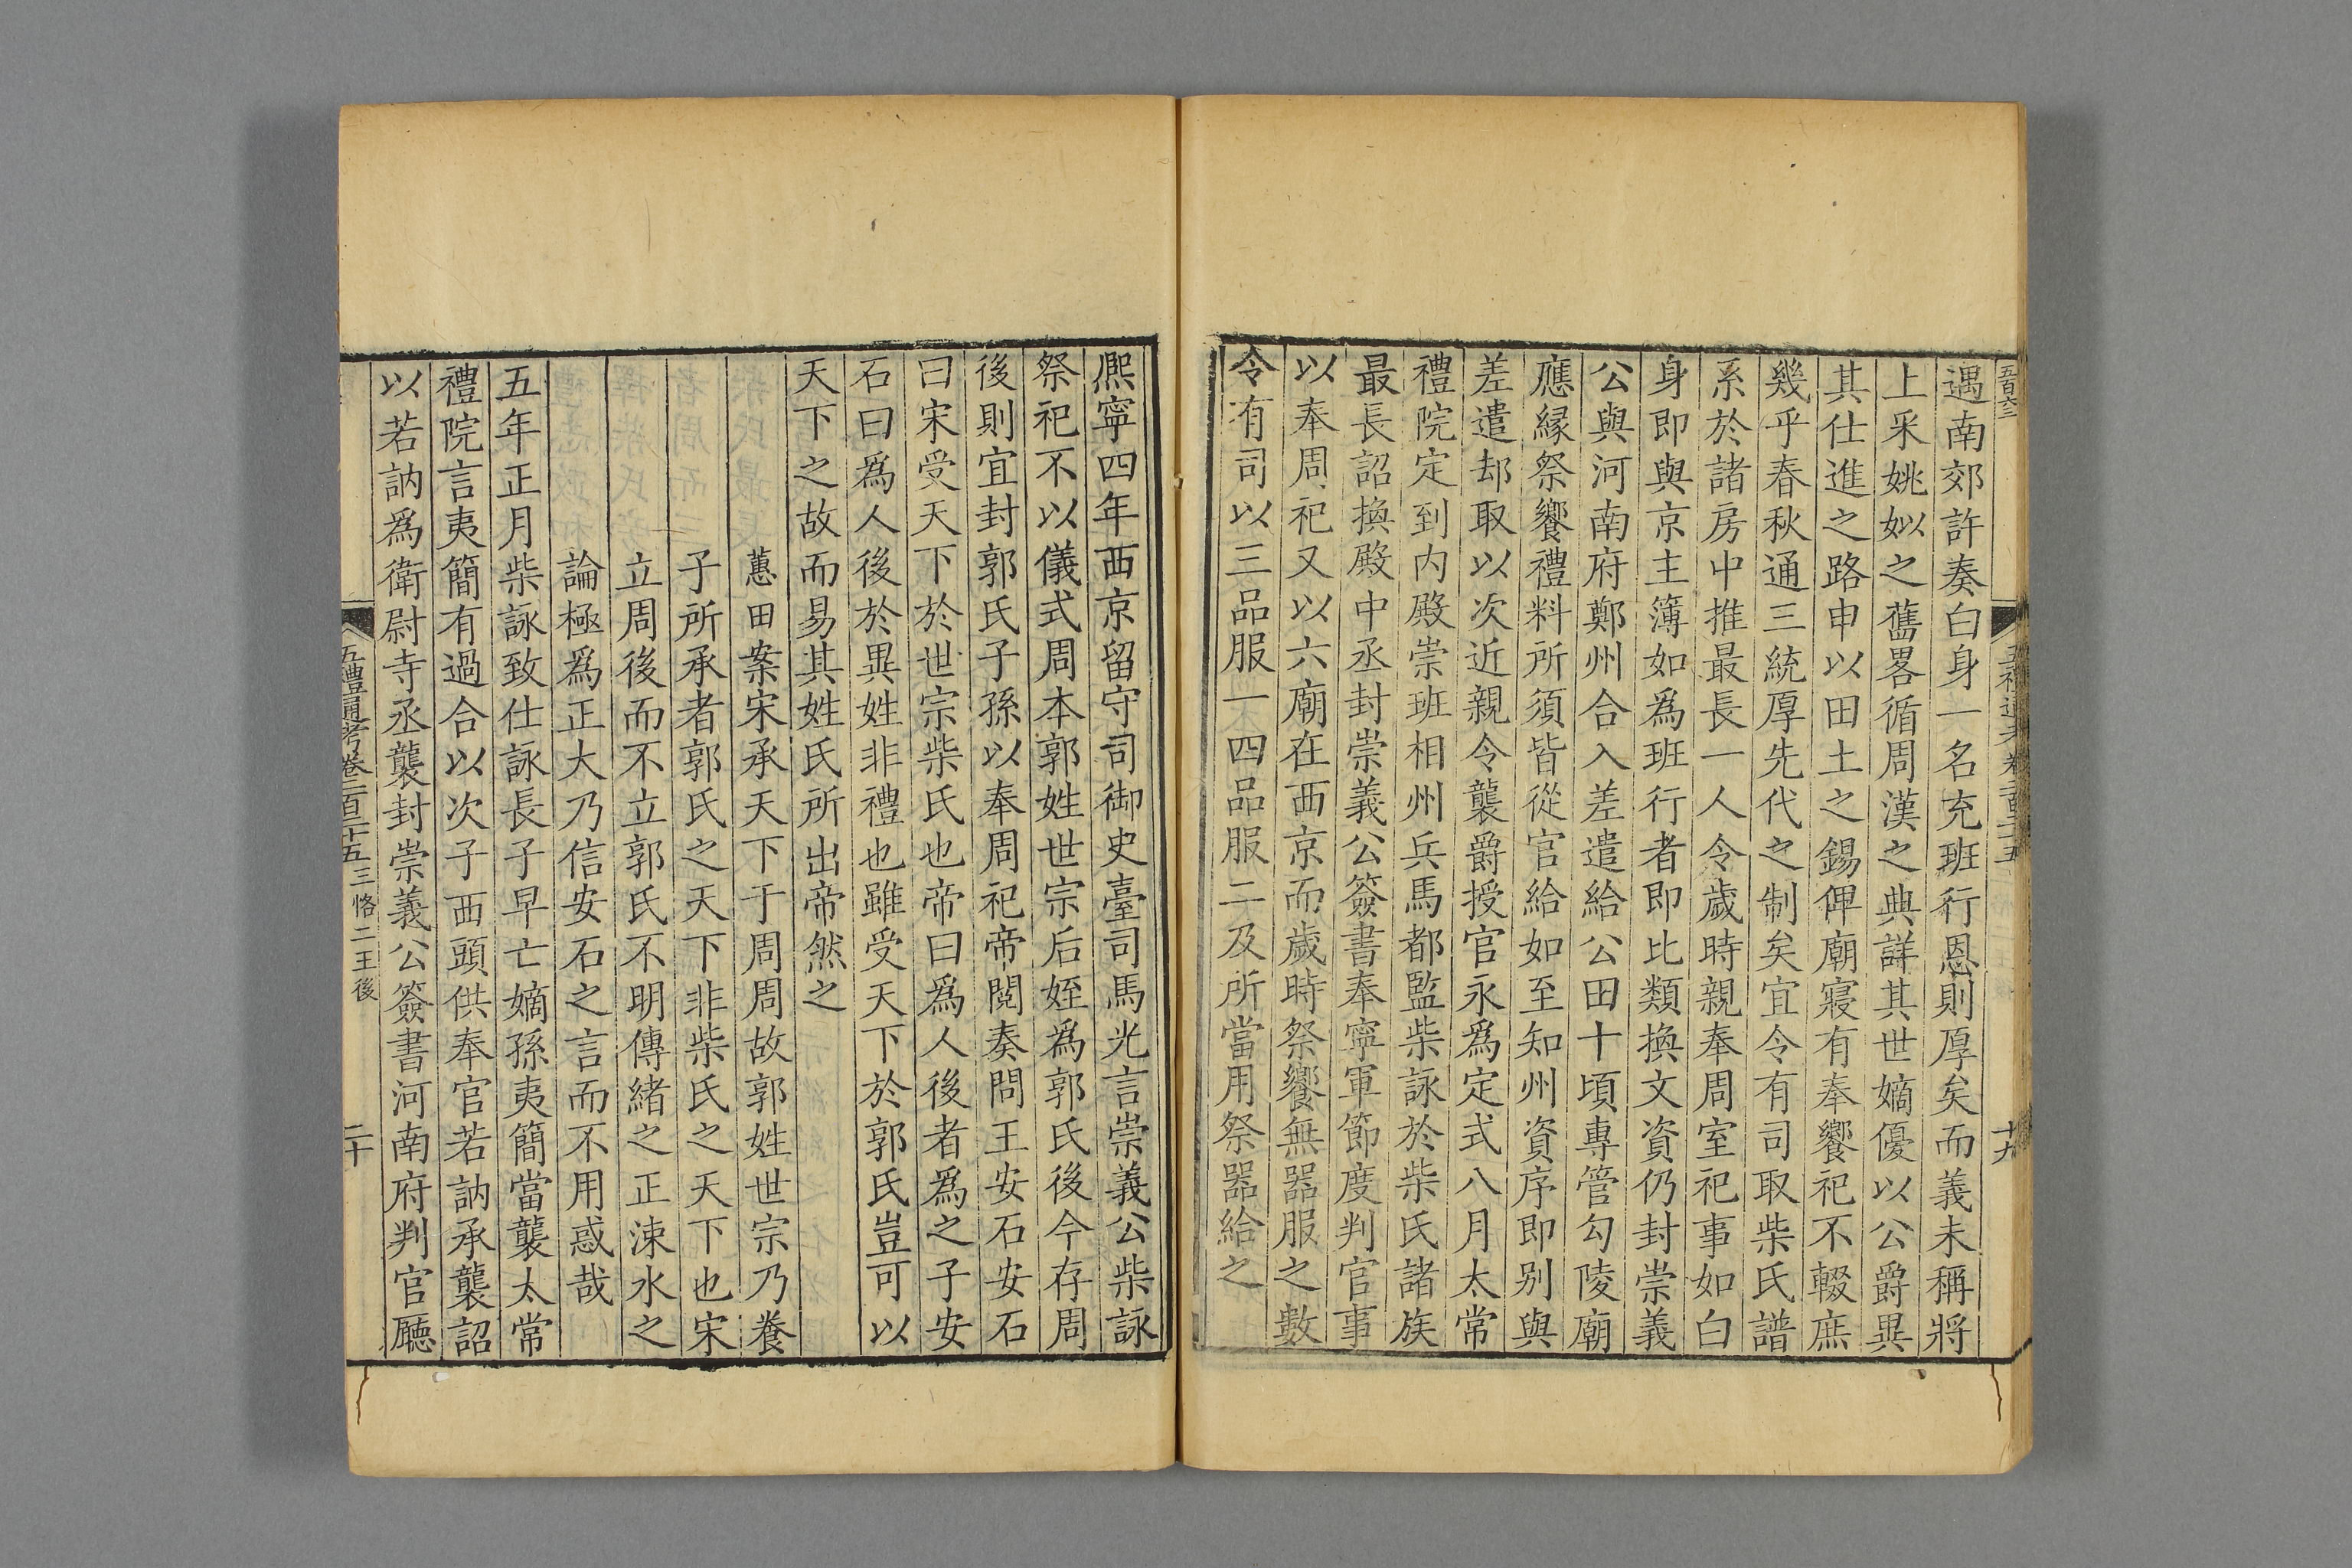 遇南郊許奏白身一名充班行恩則厚矣而義未稱將
上采姚姒之舊畧循周漢之典詳其世嫡優以公爵異
其仕進之路申以田土之錫俾廟寢有奉饗祀不輟庶
幾乎春秋通三統厚先代之制矣宜令有司取柴氏譜
系於諸房中推最長一人令歲時親奉周室祀事如白
身即與京主簿如爲班行者即比類換文資仍封崇義
公與河南府鄭州合入差遣給公田十頃專管勾陵廟
應縁祭饗禮料所須皆從官給如至知州資序即别與
差遣却取以次近親令襲爵授官永爲定式八月太常
禮院定到内殿崇班相州兵馬都監柴詠於柴氏諸族
最長詔換殿中丞封崇義公簽書奉寧軍節度判官事
以奉周祀又以六廟在西京而歲時祭饗無器服之數
令有司以三品服一四品服二及所當用祭器給之
十九
熈寧四年西京留守司御史臺司馬光言崇義公柴詠
祭祀不以儀式周本郭姓世宗后姪爲郭氏後今存周
後則宜封郭氏子孫以奉周祀帝閱奏問王安石安石
曰宋受天下於世宗柴氏也帝曰爲人後者爲之子安
石曰爲人後於異姓非禮也雖受天下於郭氏豈可以
天下之故而易其姓氏所出帝然之
蕙田案宋承天下于周周故郭姓世宗乃養
子所承者郭氏之天下非柴氏之天下也宋
立周後而不立郭氏不明傳緒之正涑水之
論極爲正大乃信安石之言而不用惑哉
五年正月柴詠致仕詠長子早亡嫡孫夷簡當襲太常
禮院言夷簡有過合以次子西頭供奉官若訥承襲詔
以若訥爲衛尉寺丞襲封崇義公簽書河南府判官廳
五禮通考卷二百二十五三恪二王後
二十